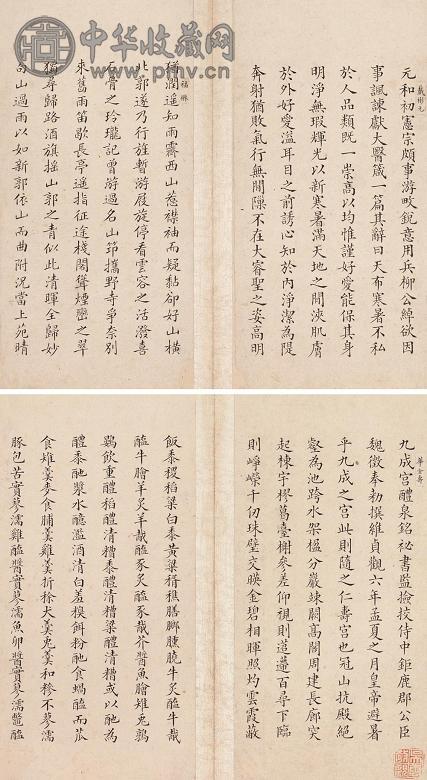 中华收藏网
戴彬元
元和初憲宗頗事游畋銳意用兵柳公綽欲因
事諷諫獻大醫箴一篇其辭曰天布寒暑不私
於人品類既一崇高以均惟謹好愛能保其身
明淨無瑕輝光以新寒暑滿天地之間浹肌膚
於外好愛溢耳目之前誘心知於內淨潔為隄
奔射猶敗氣行無間隟不在大睿聖之姿高明
福楙
稍潤遥知雨霽西山惹襟袖而疑黏卻好山橫
北郭遂乃行旌暫游屐旋停看雲容之活潑喜
石骨之玲瓏記曾游過名山笻攜野寺爭奈別
來舊雨笛歇長亭遥指征途棧閣聳煙巒之翠
獨尋歸路酒旗摇山郭之青似此清暉全歸妙
高山過雨以如新郭依山而曲附況當上苑晴
華金壽
九成宮醴泉銘祕書監撿挍侍中鉅鹿郡公臣
魏徵奉勑撰維貞觀六年孟夏之月皇帝避暑
乎九成之宮此則隨之仁壽宮也冠山抗殿絕
壑為池跨水架楹分巖竦闕高閣周建長廊突
起棟宇膠葛臺榭參差仰視則迢遰百尋下臨
則崢嶸千仞珠璧交暎金碧相暉照灼雲霞蔽
飯黍稷稻粱白黍黃粱稰穛膳膷臐膮牛炙醢牛胾
醢牛膾羊炙羊胾醢豕炙醢豕胾芥醬魚膾雉兔鶉
鷃飲重醴稻醴清糟黍醴清糟粱醴清糟或以酏為
醴黍酏漿水醷濫酒清白羞糗餌粉酏食蝸醢而苽
食雉羹麥食脯羹雞羹折稌犬羹兔羹和糝不蓼濡
豚包苦實蓼濡雞醢醬實蓼濡魚卵醬實蓼濡鱉醢